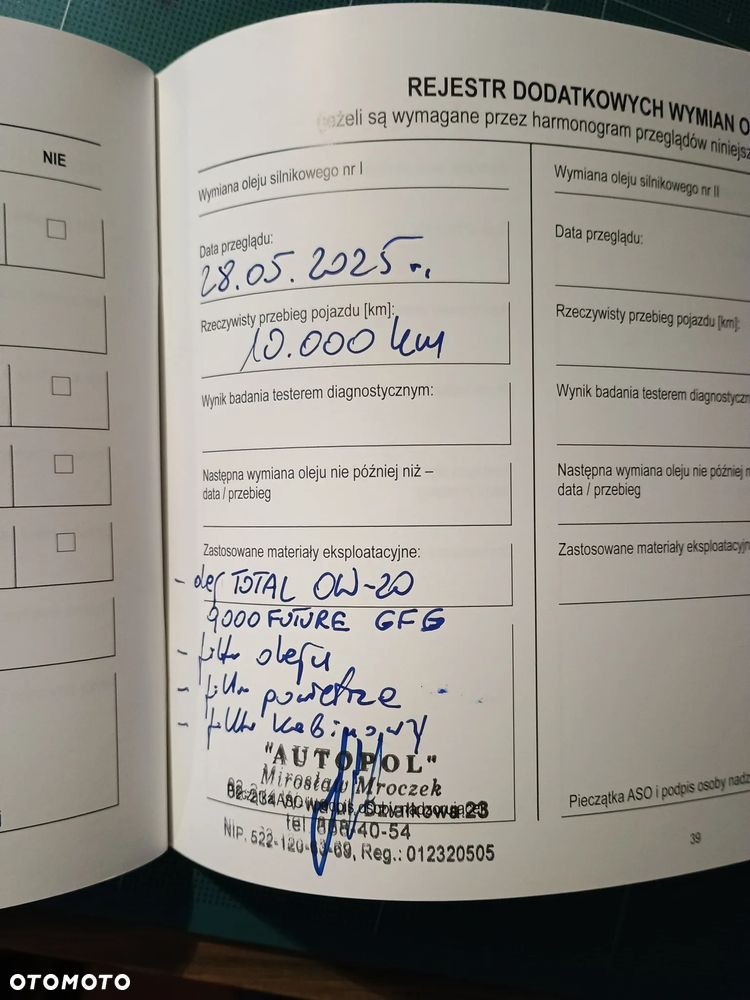 NIE
REJESTR DODATKOWYCH WYMIAN O
jeżeli są wymagane przez harmonogram przeglądów niniejsz
Wymiana oleju silnikowego nr I
Data przeglądu:
28.05.2025 r.
Rzeczywisty przebieg pojazdu [km]:
10.000 km
Wynik badania testerem diagnostycznym:
Następna wymiana oleju nie później niż –
data / przebieg
Zastosowane materiały eksploatacyjne:
- olej TOTAL 0W-20
9000 FUTURE GF6
- filtr oleju
- filtr powietrza
- filtr kabinowy
"AUTOPOL"
Mirosław Mroczek
Działkowa 23
tel.
40-54
Reg.: 012320505
Wymiana oleju silnikowego nr II
Data przeglądu:
Rzeczywisty przebieg pojazdu [km]:
Wynik badania testerem diagnostyczn
Następna wymiana oleju nie później n
data / przebieg
Zastosowane materiały eksploatacyjn
Pieczątka ASO i podpis osoby nadz
39
OTOMOTO